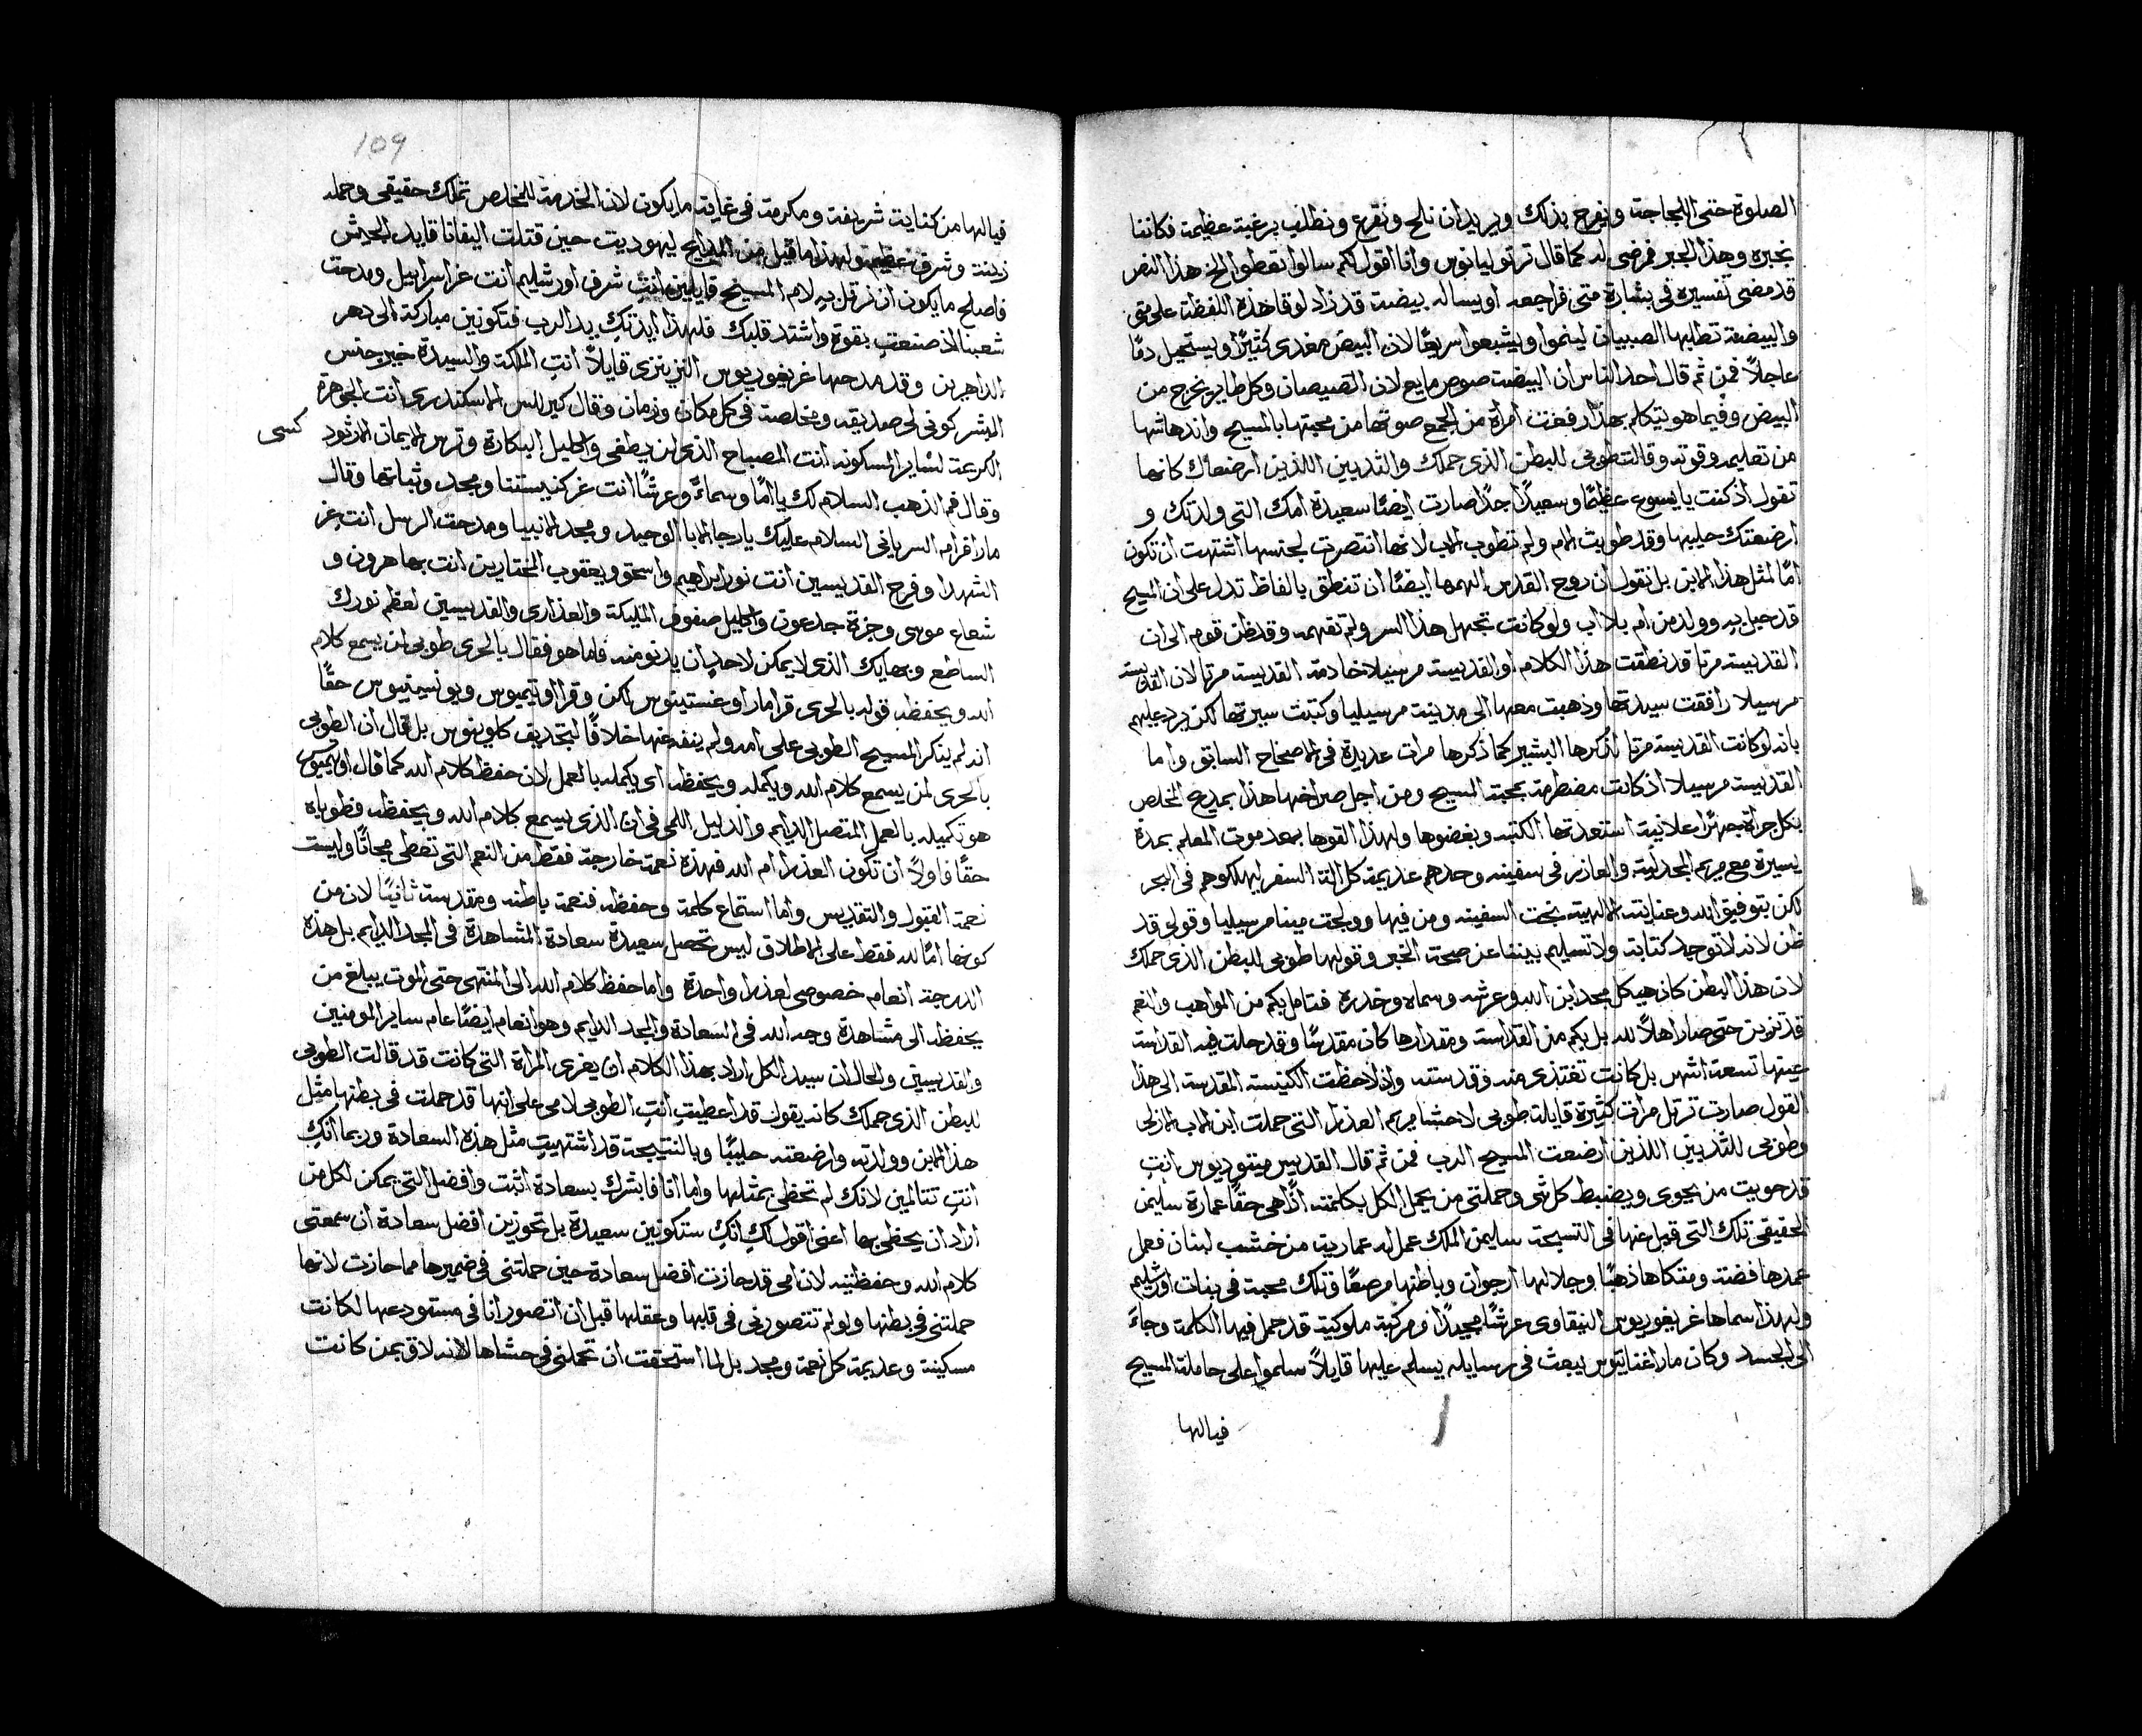 الصلوة حتى اللجاجة ونفرح بذلك ويريد ان نلح ونقرع ونطلب برغبة عظيمة فكاننا
نجبره وهذا الجبر فرضى له كما قال ترتوليانوس وانا اقول لكم سالوا تعطوا الخ هذا النص
قد مضى تفسيره فى بشارة متى فراجعه او يساله بيضة قد زاد لوقا هذه اللفظة على متى
والبيضة تطلبها الصبيان لينموا ويشبعوا سريعًا لان البيض مغدى كثيرًا ويستحيل دمًا
عاجلاً فمن ثم قال احد الناس ان البيضة صوص مايع لان الصيصان وكل طاير يخرج من
البيض وفيما هو يتكلم بهذا رفعت امراة من الجمع صوتها من محبتها بالمسيح واندهاشها
من تعليمه وقوته وقالت طوبى للبطن الذى حملك والثديين اللذين ارضعاك كانها
تقول اذ كنت يا يسوع عظيمًا وسعيدًا جدًا صارت ايضًا سعيدة امك التى ولدتك و
ارضعتك حليبها وقد طوبت الام ولم تطوب الاب لانها انتصرت لجنسها اشتهت ان تكون
امًا لمثل هذا الابن بل نقول ان روح القدس الهمها ايضًا ان تنطق بالفاظ تدل على ان المسيح
قد حبل به وولد من ام بلا اب ولو كانت تجهل هذا السر ولم تفهمه وقد ظن قوم الى ان
القديسة مرتا قد نطقت هذا الكلام او القديسة مرسيلا خادمة القديسة مرتا لان القديسة
مرسيلا رافقت سيدتها وذهبت معها الى مدينة مرسيليا وكتبت سيرتها لكن يرد عليهم
بانه لو كانت القديسة مرتا لذكرها البشير كما ذكرها مرات عديدة فى الاصحاح السابق واما
القديسة مرسيلا اذ كانت مضطرمة بمحبة المسيح ومن اجل صراخها هذا بمديح المخلص
بكل جراة جهرًا علانية استعدتها الكتبه وبغضوها ولهذا القوها بعد موت المعلم بمدة
يسيرة مع مريم المجدلية والعازر فى سفينه وحدهم عديمة كل الة السفر ليهلكوهم فى البحر
لكن بتوفيق الله وعنايته الالهية نجت السفينه ومن فيها وولجت مينا مرسيليا وقولى قد
ظن لانه لا توجد كتابة ولا تسليم يبنا عن صحة الخبر وقولها طوبى للبطن الذى حملك
لان هذا البطن كان هيكل مجد ابن الله وعرشه وسماه وخدره فتامل بكم من المواهب والنعم
قد تزين حتى صار اهلاً لله بل بكم من القداسة ومقدارها كان مقدسًا وقد حلت فيه القداسة
عينها تسعة اشهر بل كانت تغتذى منه وقدسته واذ لاحظت الكنيسة المقدسة الى هذا
القول صارت ترتل مرات كثيرة قايلة طوبى لاحشا مريم العذرا التى حملت ابن الاب الازلى
وطوبى للثديين اللذين ارضعت المسيح الرب فمن ثم قال القديس ميثوديوس انتِ
قد حويت من يحوى ويضبط كل شى وحملتى من يحمل الكل بكلمته اذًا هى حقًا عمارة سليمن
الحقيقى تلك التى قيل عنها فى التسبحة سليمن الملك عمل له عمارية من خشب لبنان فعمل
عمدها فضة ومتكاها ذهبًا وجلالها ارجوان وباطنها مرصعًا وتلك محبة فى بنات اورشليم
ولهذا سماها غريغوريوس النيقاوى عرشًا مجيدًا ومركبة ملوكية قد حمل فيها الكلمة وجاء
الى الجسد وكان مار اغناتيوس يبعث فى رسايله يسلم عليها قايلاً سلموا على حاملة المسيح
فيالها
109
فيالها من كناية شريفة ومكرمة فى غاية ما يكون لان الخدمة للمخلص تملك حقيقى وحمله
زينة وشرف عظيم ولهذا ما قيل من المدايح ليهوديت حين قتلت اليفانا قايد الجيش
فاصلح ما يكون ان نرتل به لام المسيح قايلين انتِ شرف اورشليم انت عز اسراييل ومدحة
شعبنا لانك صنعتِ بقوة واشتد قلبك فلهذا ايدتكِ يد الرب فتكونين مباركة الى دهر
الداهرين وقد مدحها غريغوريوس النزينزى قايلاً انتِ الملكة والسيدة خير جنس
البشر كونى لى صديقه ومخلصة فى كل مكان وزمان وقال كيرللس الاسكندرى انت الجوهرة
الكريمة لساير المسكونه انت المصباح الذى لن يطفى واكليل البكارة وترس الايمان الارثودكسى
وقال فم الذهب السلام لك يا امًا وسماءً وعرشًا انت عز كنيستنا ومجد وثباتها وقال
مار افرام السريانى السلام عليك يا رجا الابا الوحيد ومجد الانبيا ومدحة الرسل انت عز
الشهدا وفرح القديسين انت نور ابراهيم واسحق ويعقوب المختارين انت بها هرون و
شعاع موسى وجزة جدعون واكليل صفوف المليكة والعذارى والقديسين لعظم نورك
الساطع وبهايك الذى لا يمكن لاحدٍ ان يدنو منه فاما هو فقال بالحرى طوبى لمن يسمع كلام
الله ويحفظه قوله بالحرى قرا مار اوغستينوس لكن وقرا اوتيميوس ويونسينيوس حقًا
انه لم ينكر المسيح الطوبى على امه ولم ينفه عنها خلافًا لتجديف كلوينوس بل قال ان الطوبى
بالحرى لمن يسمع كلام الله ويكمله ويحفظه اى يكمله بالعمل لان حفظ كلام الله كما قال اوتيميوس
هو تكميله بالعمل المتصل الدايم والدليل اللمى فى ان الذى يسمع كلام الله ويحفظه فطوباه
حقًا فاولاً ان تكون العذرا ام الله فهذه نعمة خارجة فقط من النعم التى تعطى مجانًا وليست
نعمة القبول والتقديس واما استماع كلمة وحفظه فنعمة باطنه ومقدسة ثانيًا لان من
كونها امًا لله فقط على الاطلاق ليس تحصل سعيدة سعادة المشاهدة فى المجد الدايم بل هذه
الدرجة انعام خصوصى لعذرا واحدة واما حفظ كلام الله الى المنتهى حتى الموت يبلغ من
يحفظه الى مشاهدة وجه الله فى السعادة والمجد الدايم وهو انعام ايضًا عام ساير المومنين
والقديسين والحال ان سيد الكل اراد بهذا الكلام ان يغرى المراة التى كانت قد قالت الطوبى
للبطن الذى حملك كانه يقول قد اعطيتِ انتِ الطوبى لامى على انها قد حملت فى بطنها مثل
هذا الابن وولدته وارضعته حليبًا وبالنتيجة قد اشتهيتِ مثل هذه السعادة وربما انكِ
انتِ تتالمين لانك لم تحظى بمثلها واما انا فابشرك بسعادة اثبت وافضل التى يمكن لكل من
اراد ان يحظى بها اعنى اقول لكِ انكِ ستكونين سعيدة بل تحوزين افضل سعادة ان سمعتى
كلام الله وحفظتيه لان امى قد حازت افضل سعادة حين حملتنى فى ضميرها مما حازت لانها
حملتنى فى بطنها ولو لم تتصورنى فى قلبها وعقلها قبل ان اتصور انا فى مستودعها لكانت
مسكينة وعديمة كل نعمة ومجد بل لما استحقت ان تحملنى فى حشاها لانه لاق بمن كانت